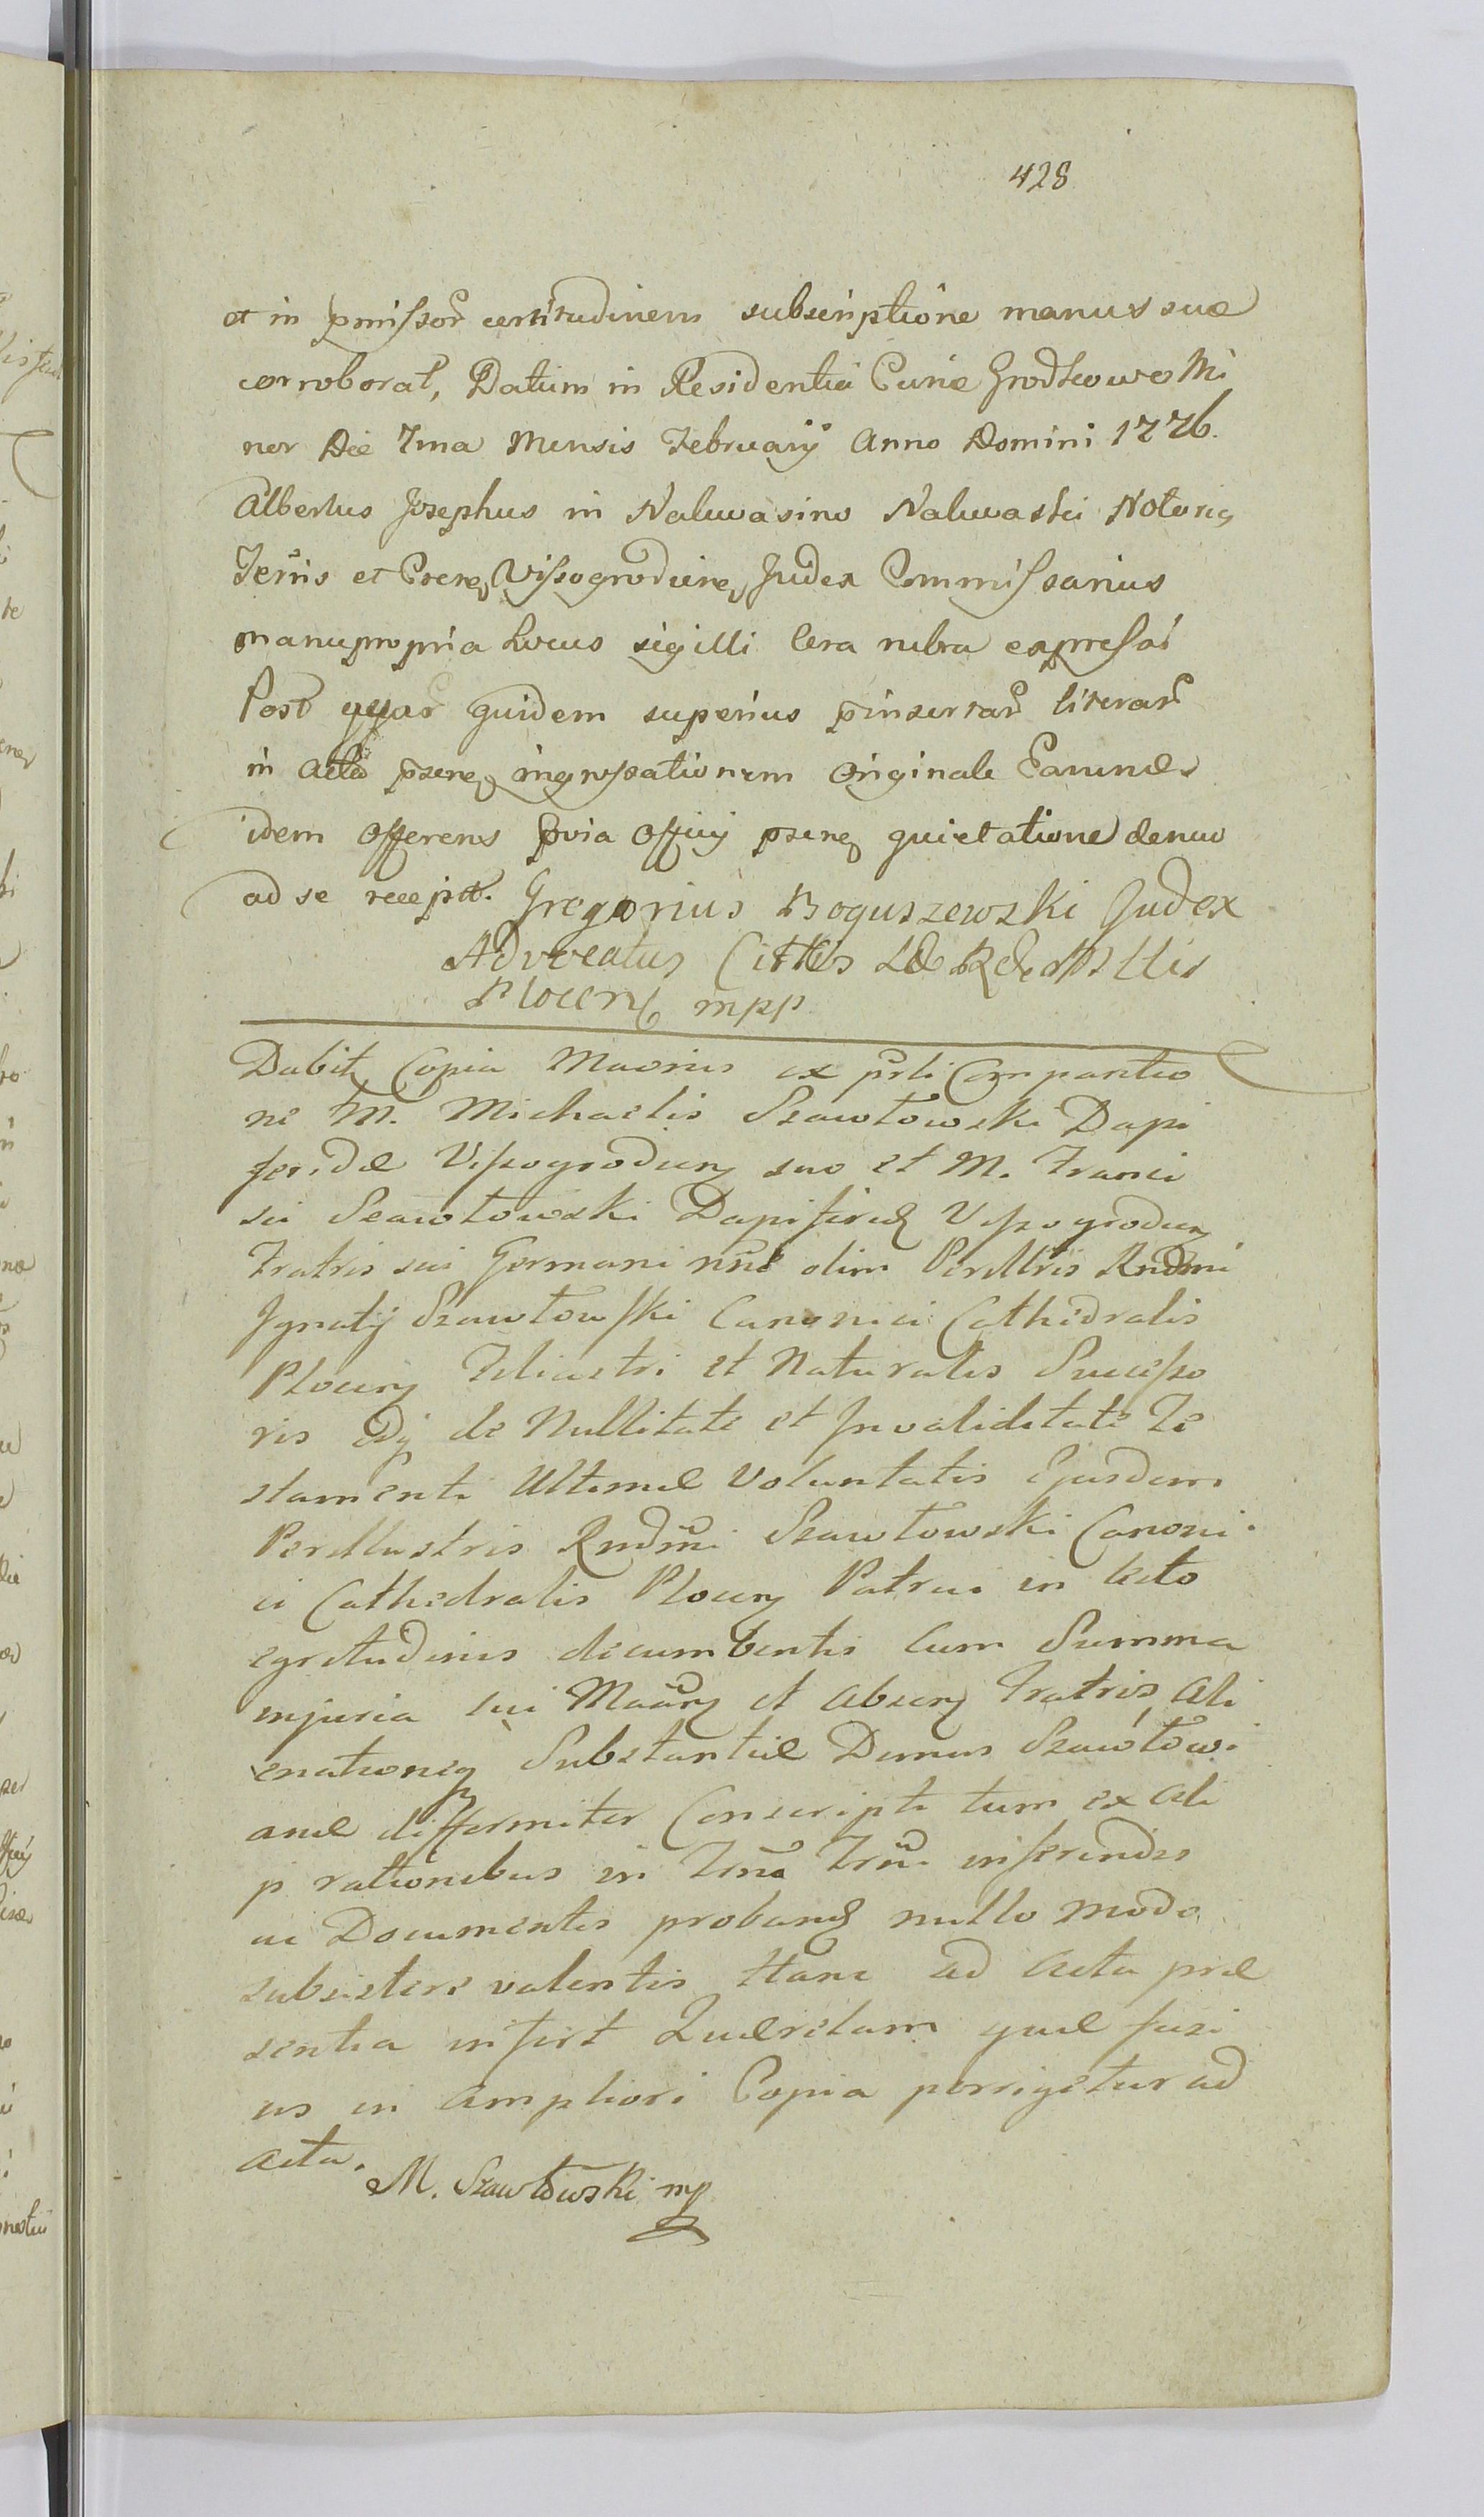 428
et in pmissor certitudinem subscriptione manus suæ
corroborat, Datum in Residentia Curiæ Grodkowo Mi
nor Die 7ma Mensis Februarij Anno Domini 1776.
Albertus Josephus in Naluwasino Naluwaski Notariq
Terris et Cceneq Vissogrodicneq Judex Commissarius
manupropria Locus sigilli Cera rubra expressi
Post qquar quidem superius pinsertar literar
in Acta psene ingrossationem Originale Earund
idem Offerens pvia Officij psene quietatione denuo
ad se recepit. Gregorius Boguszewski Judex
Advocatus Cittes
Plocen mpp
Dabit Copia Maoris ex psti Comparitio
ne M. Michaelis Szawłowski Dapi
feridæ Vissogroden suo et M. Franci
sci Szawłowski Dapiferid Vissogroden
Fratris sui Germani nnc olim Perlltris Rndmi
Ignatij Szawłowski Canonici Cathedralis
Plocen Feliastri et Naturalis Successo
ris de Nullitate et Invaliditate Te
stamenti Ultimæ Voluntatis Ejusdem
Perillustris Rndmi Szawłowski Canoni
ci Cathedralis Plocen Patrui in lecto
egritudinis decumbentis Cum Summa
injuria sui Maoren et absen Fratris Ali
enationeq Substantiæ Domus Szawłowi
anæ differmiter Conscripti tum ex Ali
p rationibus in Trna Trmi inferendis
ac Documentis proband nullo modo
subsistere valentis Hanc ad Acta præ
sentia infert Quærelam quæ fusi
us in Ampliori Copia porrigetur ad
acta.
M. Szawłowski mp